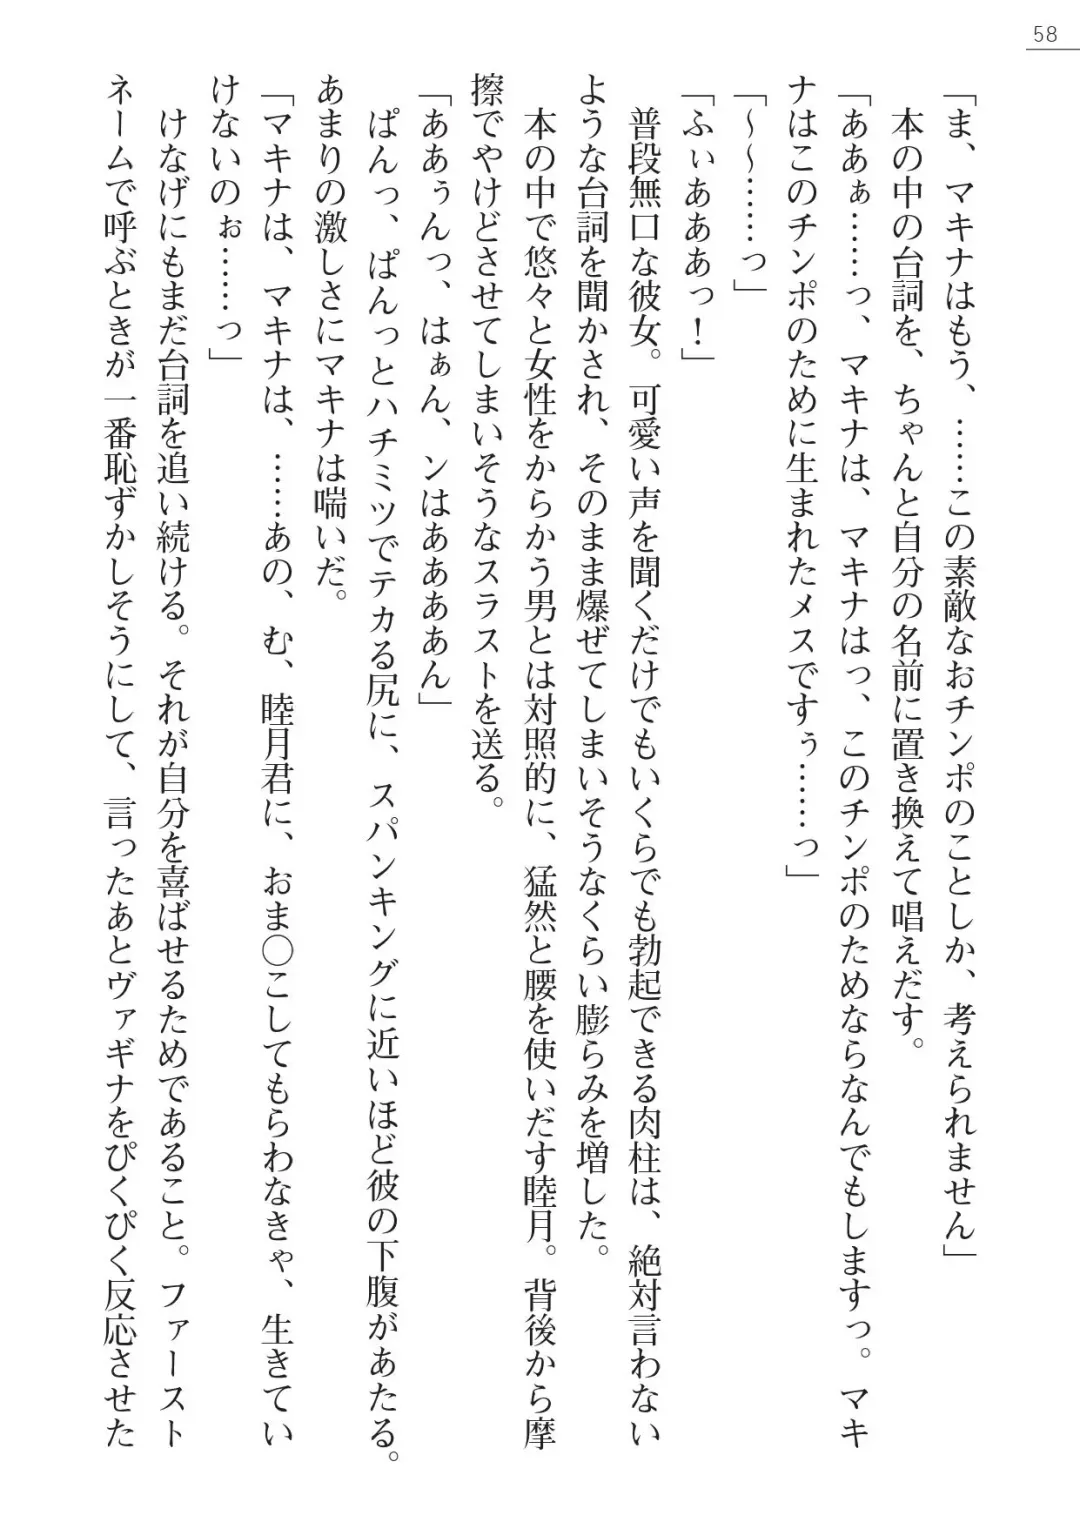 58
「ま、マキナはもう、……この素敵なおチンポのことしか、考えられません」
本の中の台詞を、ちゃんと自分の名前に置き換えて唱えだす。
「ああぁ……っ、マキナは、マキナはっ、このチンポのためならなんでもしますっ。マキ
ナはこのチンポのために生まれたメスですぅ……っ」
「～～……っ」
「ふぃあああっ！」
普段無口な彼女。可愛い声を聞くだけでもいくらでも勃起できる肉柱は、絶対言わない
ような台詞を聞かされ、そのまま爆ぜてしまいそうなくらい膨らみを増した。
本の中で悠々と女性をからかう男とは対照的に、猛然と腰を使いだす睦月。背後から摩
擦でやけどさせてしまいそうなスラストを送る。
「ああぅんっ、はぁん、ンはああああん」
ぱんっ、ぱんっとハチミツでテカる尻に、スパンキングに近いほど彼の下腹があたる。
あまりの激しさにマキナは喘いだ。
「マキナは、マキナは、……あの、む、睦月君に、おま〇こしてもらわなきゃ、生きてい
けないのぉ……っ」
けなげにもまだ台詞を追い続ける。それが自分を喜ばせるためであること。ファースト
ネームで呼ぶときが一番恥ずかしそうにして、言ったあとヴァギナをぴくぴく反応させた